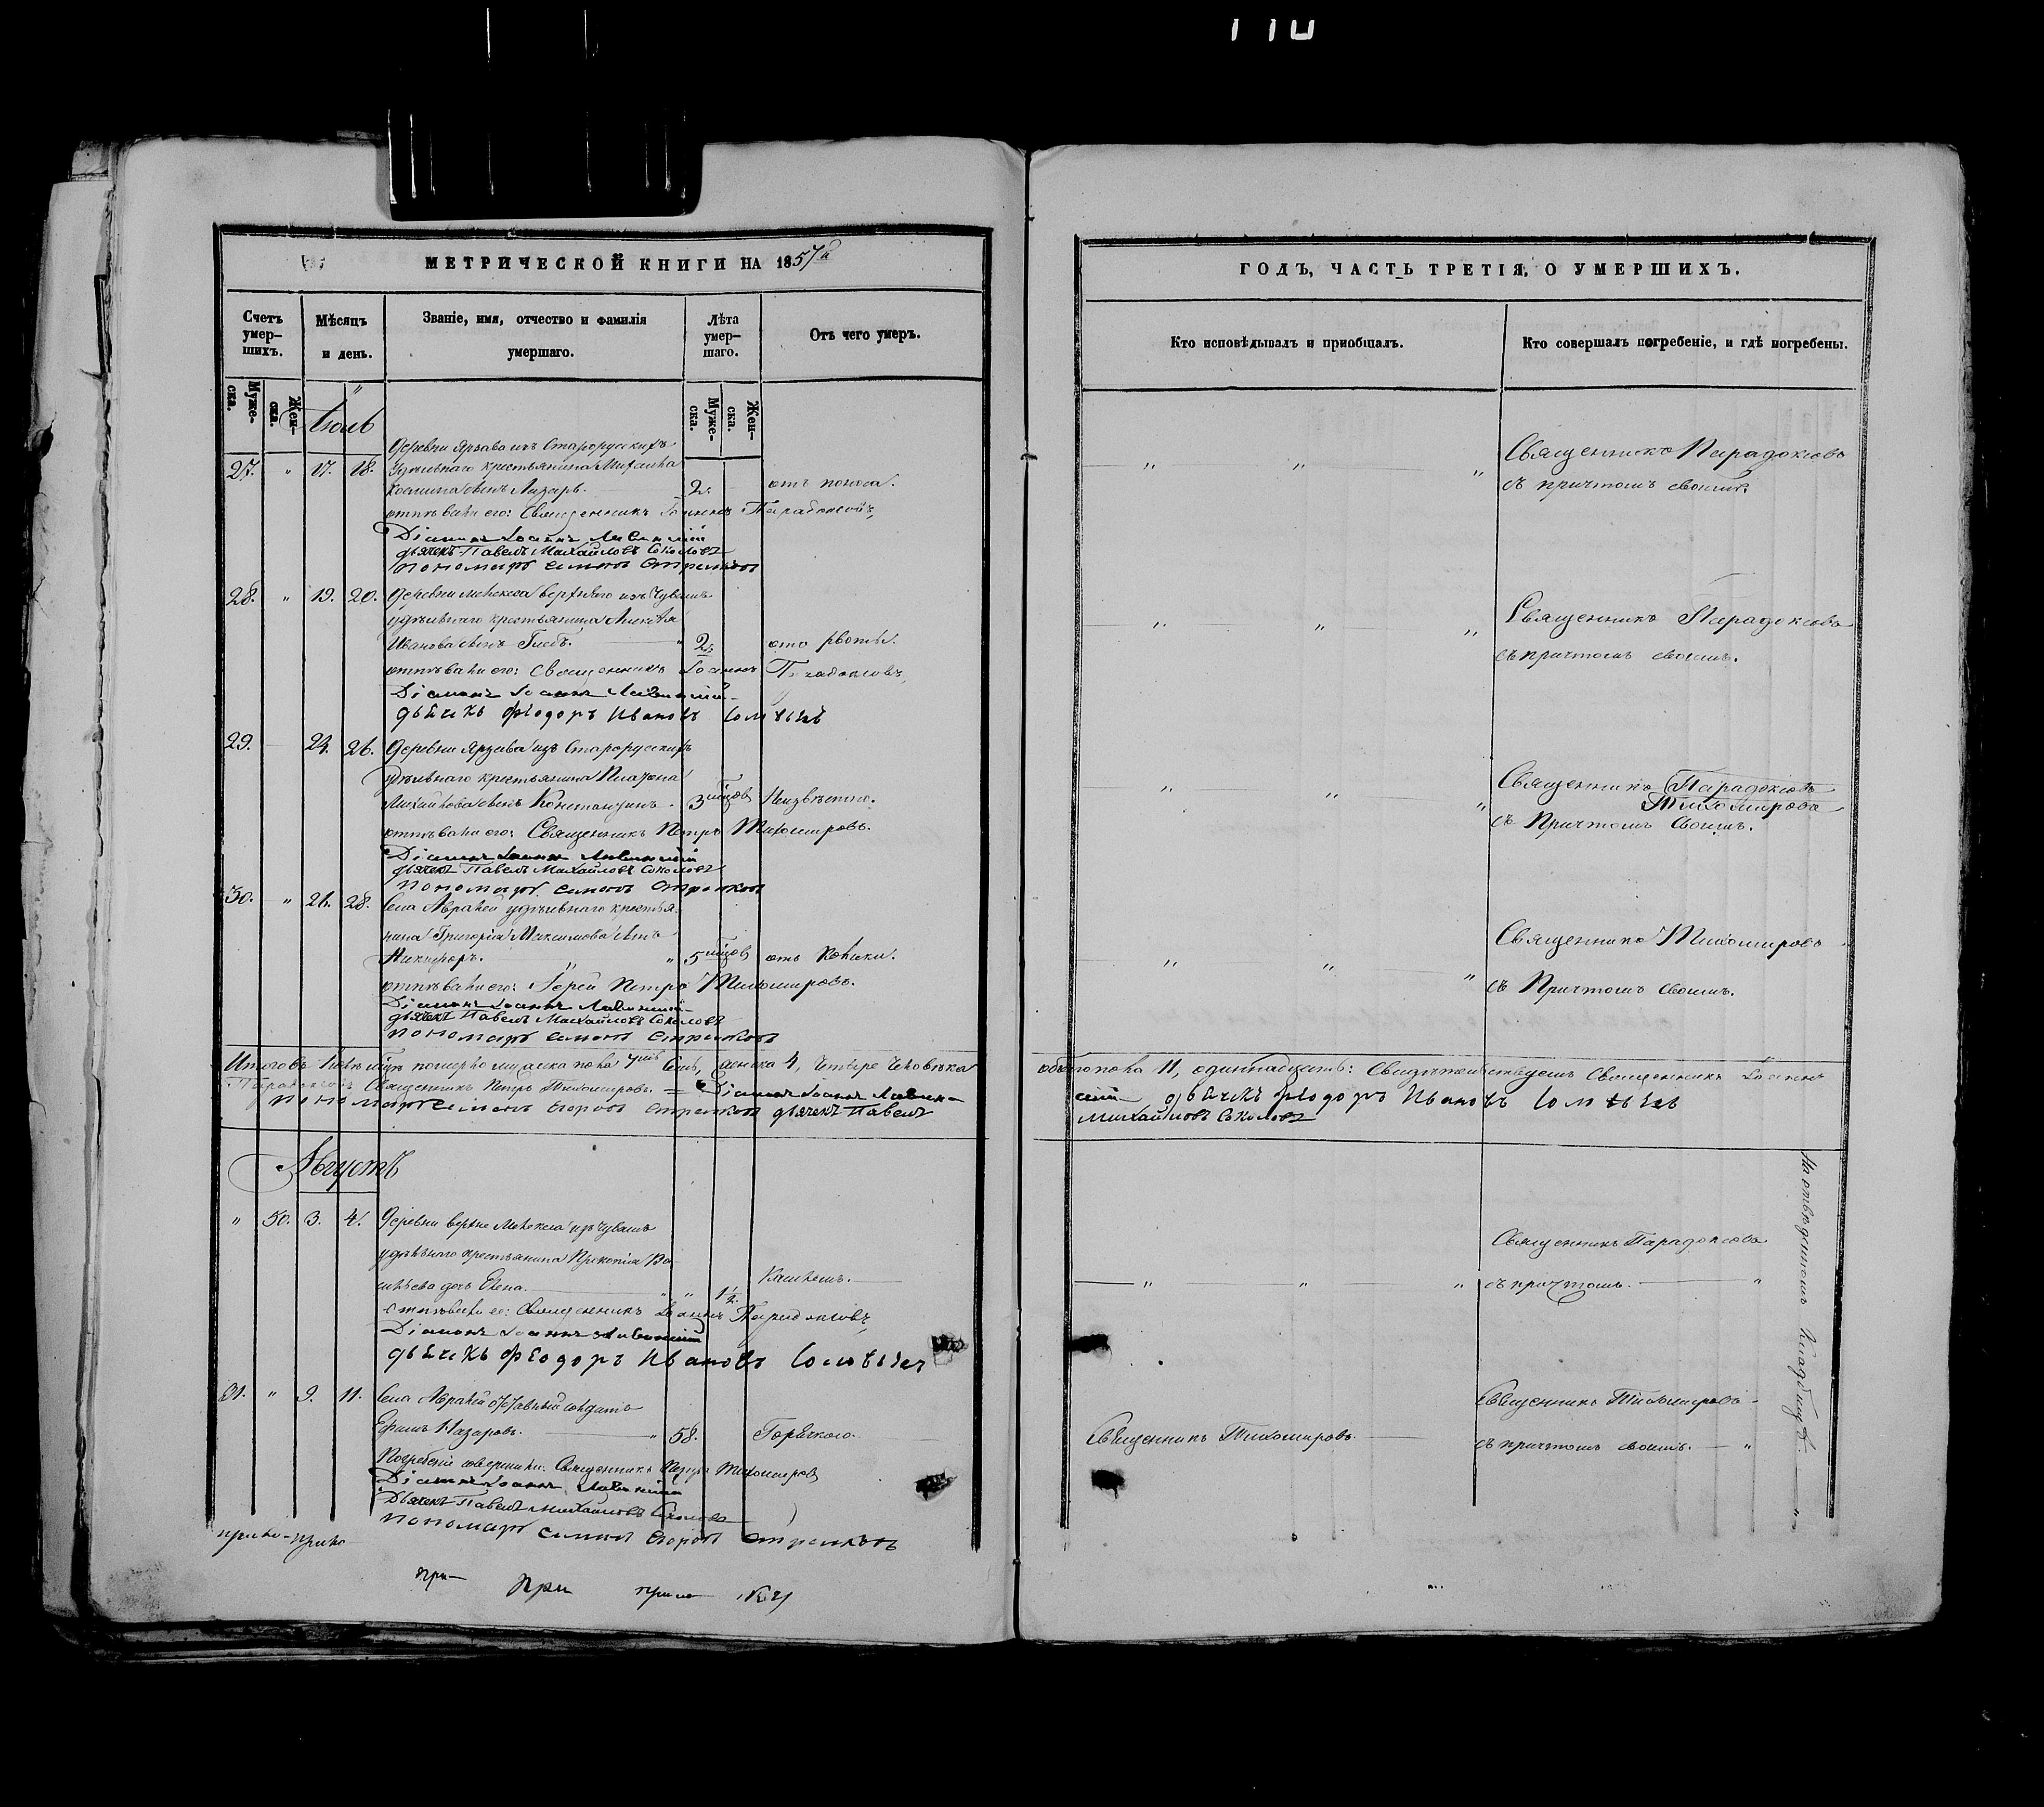 110
МЕТРИЧЕСКОЙ КНИГИ НА 1857й
Счетъ умер-шихъ.
Мѣсяцъ и день.
Званіе, имя, отчество и фамилія умершаго.
Лѣта умер-шаго.
Отъ чего умеръ.
Муже-ска.
Жен-ска.
Муже-ска.
Жен-ска.
Іюль
Деревни Ярзова изъ Старорусскихъ
27. " 17. 18. Удѣльнаго крестьянина Михаила
Козмина сынъ Лазарь. 2. отъ поноса.
отпѣвали его: Священникъ Іоаннъ Парадоксовъ,
Діаконъ Іоаннъ
дьячекъ Павелъ Михайловъ Соколовъ
пономарь Симонъ Стрелковъ
28. " 19. 20. Деревни верхняго изъ Чувашъ
удѣльнаго крестьянина Алексѣя
Иванова сынъ Глебъ. " 2. отъ рвоты.
отпѣвали его: Священникъ Іоаннъ Парадоксовъ,
Діаконъ Іоаннъ
дьячекъ Феодоръ Ивановъ
29. 24. 26. Деревни Ярзова изъ Старорусскихъ
Удѣльнаго крестьянина Платона
Михайлова сынъ Константинъ. 3 мѣсяцовъ Неизвѣстно.
отпѣвали его: Священникъ Петръ Тихомировъ.
Діаконъ Іоаннъ
дьячекъ Павелъ Михайловъ Соколовъ
пономарь Симонъ Стрелковъ
30. " 26. 28. Села Авралей удѣльнаго крестья-
нина Григорія Максимова сынъ
Никифоръ. " " 5 мѣсяцов отъ Колики.
отпѣвали его: Іерей Петръ Тихомировъ.
Діаконъ Іоаннъ
дьячекъ Павелъ Михайловъ Соколовъ
пономарь Симонъ Стрелковъ
Итого въ Іюлѣ м-цѣ померло мужеска пола 7мь Семь, женска 4, Четыре Человѣка
Парадоксовъ Священникъ Петръ Тихомировъ. = Діаконъ Іоаннъ
пономарь Симонъ Егоровъ Стрелковъ дьячекъ Павелъ
Августъ
" 50. 3. 4. Деревни верхне изъ Чувашъ
удѣльнаго крестьянина Прокопія Ва-
сильева дочь Елена. " " 1½. Кашлемъ.
отпѣвали ее: Священникъ Іоаннъ Парадоксовъ,
Діаконъ Іоаннъ
дьячекъ Феодоръ Ивановъ
31. " 9. 11. Села Авралей отставный солдатъ
Ефимъ Назаровъ. " 58. Горячкою.
Погребеніе совершили: Священникъ Петръ Тихомировъ
Діаконъ Іоаннъ
Дьячекъ Павелъ Михайловъ Соколовъ
пономарь Симонъ Егоровъ Стрелковъ
при
ГОДЪ, ЧАСТЬ ТРЕТІЯ, О УМЕРШИХЪ.
Кто исповѣдывалъ и пріобщалъ.
Кто совершалъ погребеніе, и гдѣ погребены.
Священникъ Парадоксовъ
" " " съ причтомъ своимъ.
Священникъ Парадоксовъ
" " " съ причтомъ своимъ.
Священникъ Парадоксовъ
Тихомировъ
" " " съ Причтомъ Своимъ.
Священникъ Тихомировъ
" " " съ Причтомъ Своимъ.
обоего пола 11, одиннадцать: Свидѣтельствуемъ Священникъ Іоаннъ
дьячекъ Феодоръ Ивановъ
Михайловъ Соколовъ
Священникъ Парадоксовъ
" " " съ причтомъ. "
Священникъ Тихомировъ
Священникъ Тихомировъ. съ причтомъ своимъ. "
На отведенномъ Кладбищѣ. "